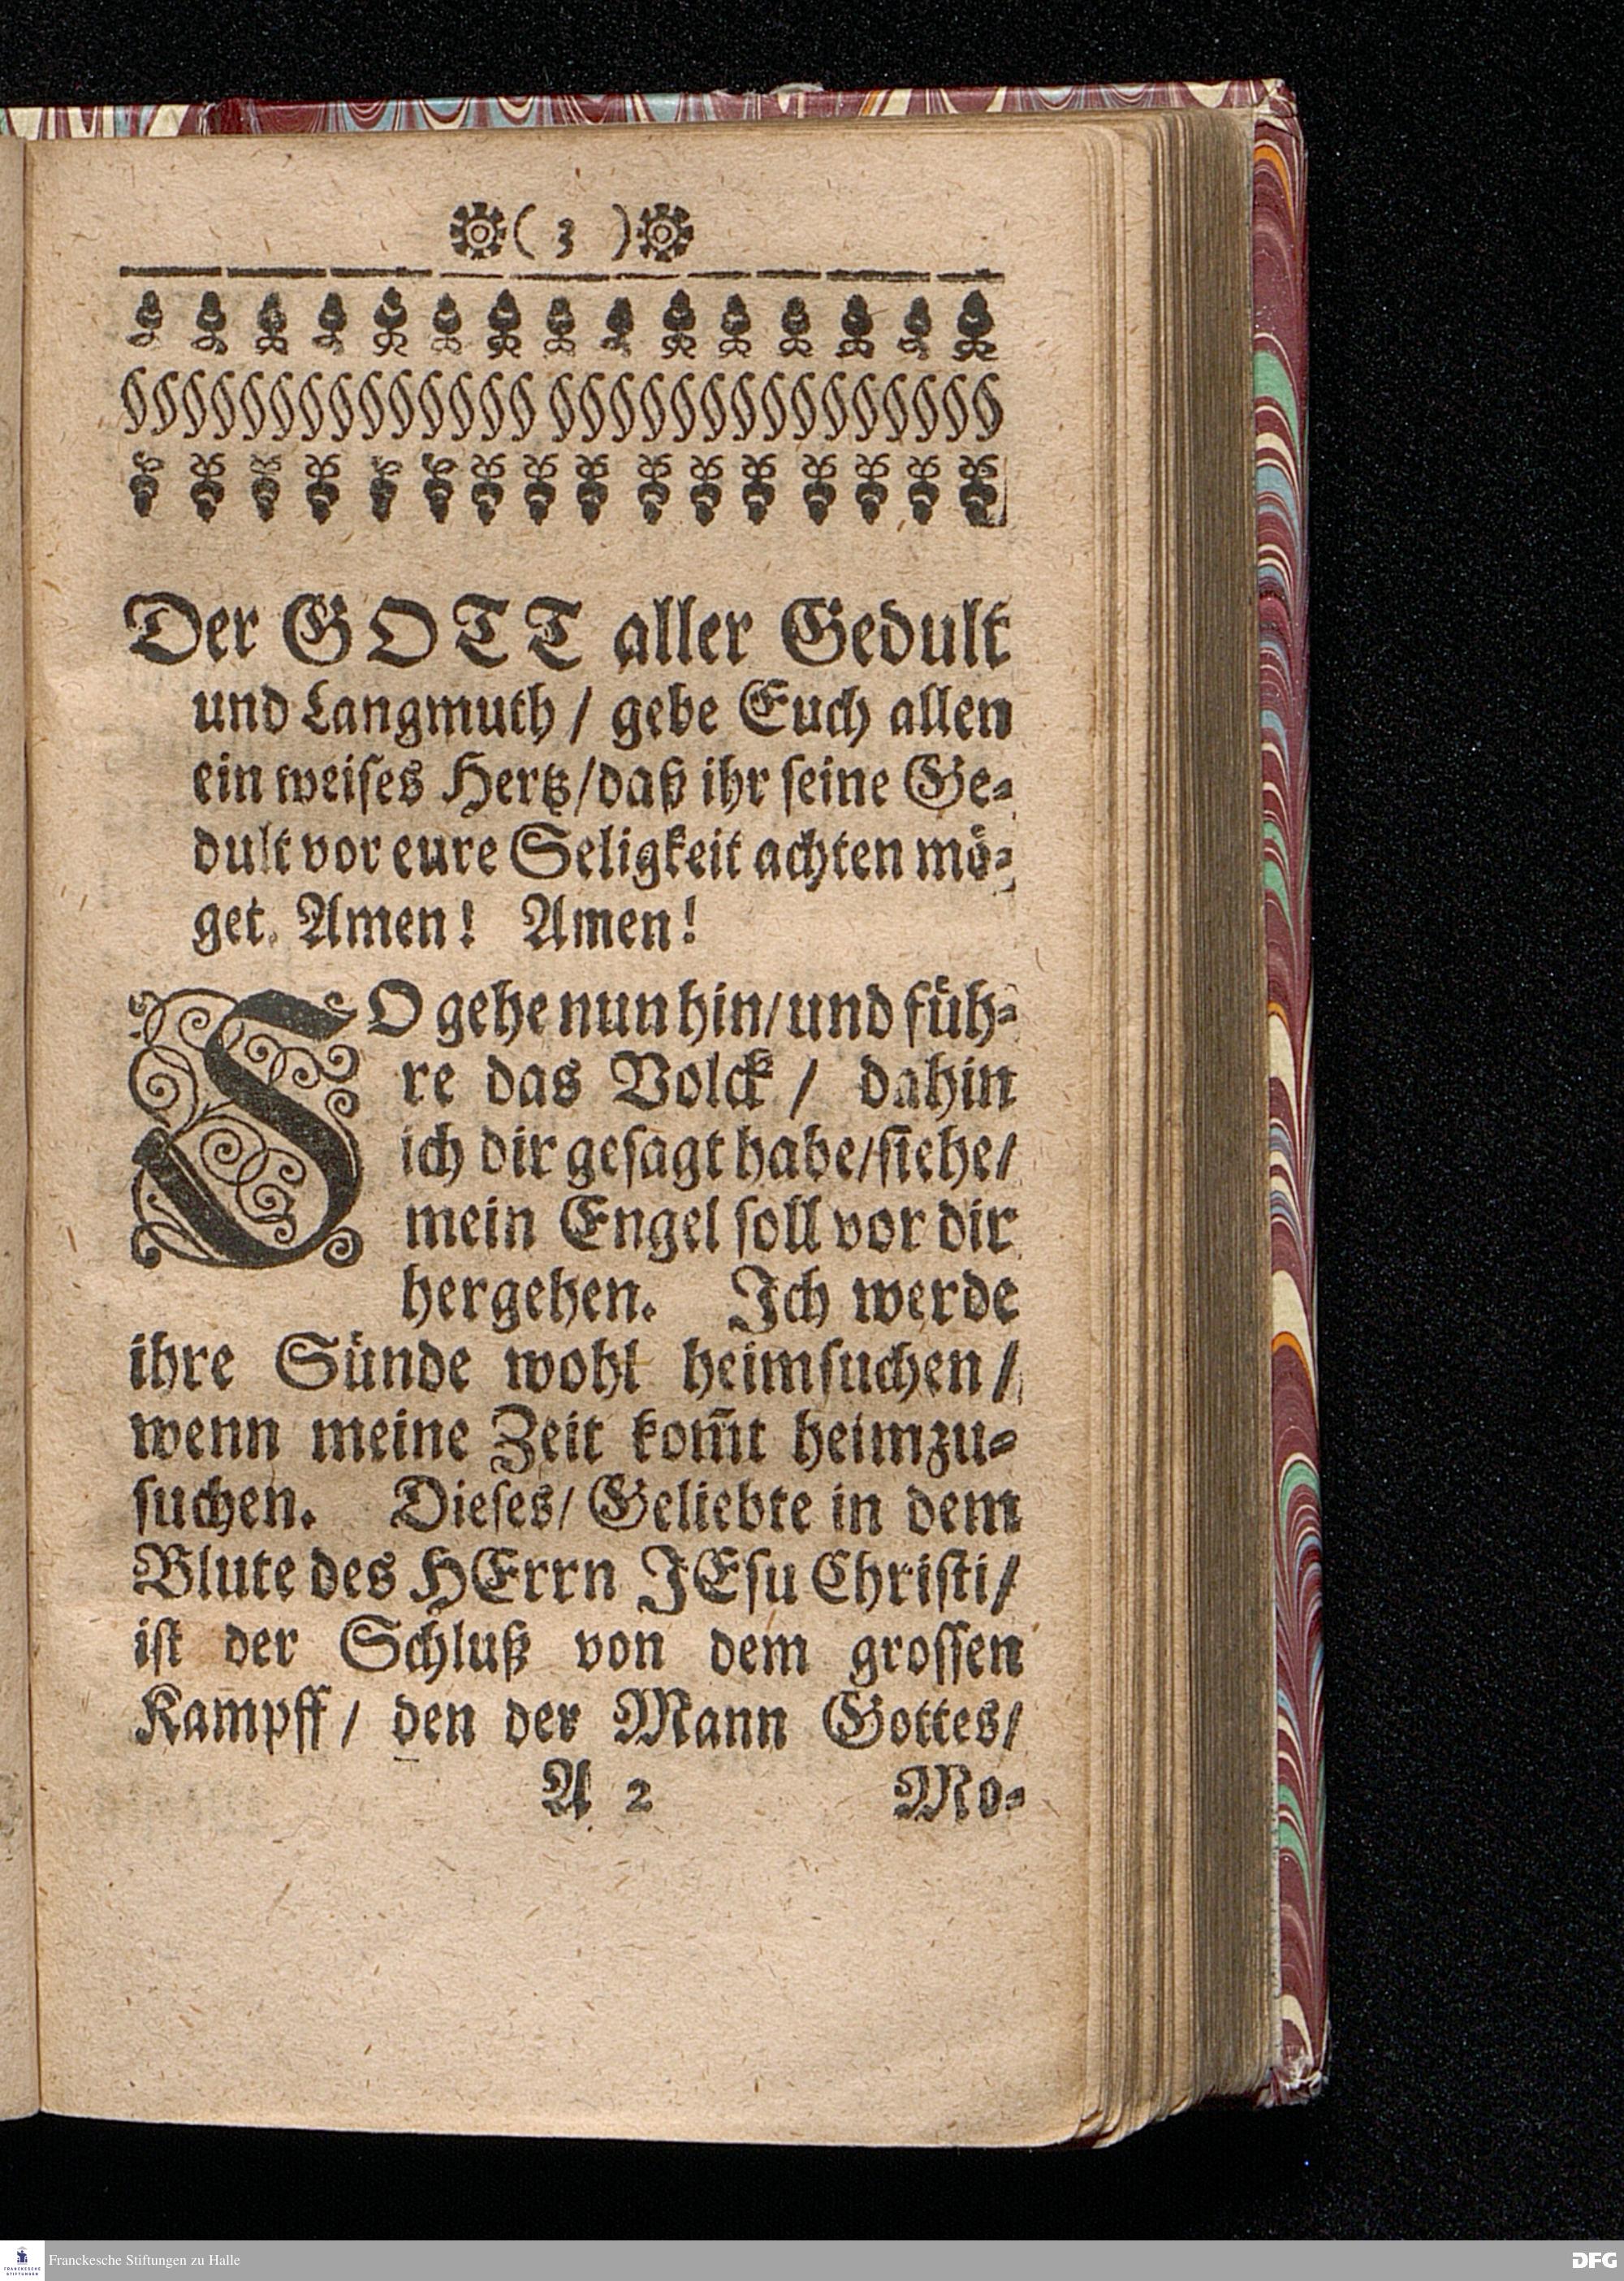 ( 3 )
Der GOTT aller Gedult
und Langmuth / gebe Euch allen
ein weiſes Hertz/daß ihr ſeine Ge-
dult vor eure Seligkeit achten moͤ-
get. Amen! Amen!
SO gehe nun hin/und fuͤh-
re das Volck / dahin
ich dir geſagt habe/ſiehe/
mein Engel ſoll vor dir
hergehen. Ich werde
ihre Suͤnde wohl heimſuchen/
wenn meine Zeit kom̃t heimzu-
ſuchen. Dieſes/ Geliebte in dem
Blute des HErrn JEſu Chriſti/
iſt der Schluß von dem groſſen
Kampff/ den der Mann Gottes/
A 2 Mo-
Franckesche Stiftungen zu Halle
FRANCKESCHE STIFTUNGEN
DFG